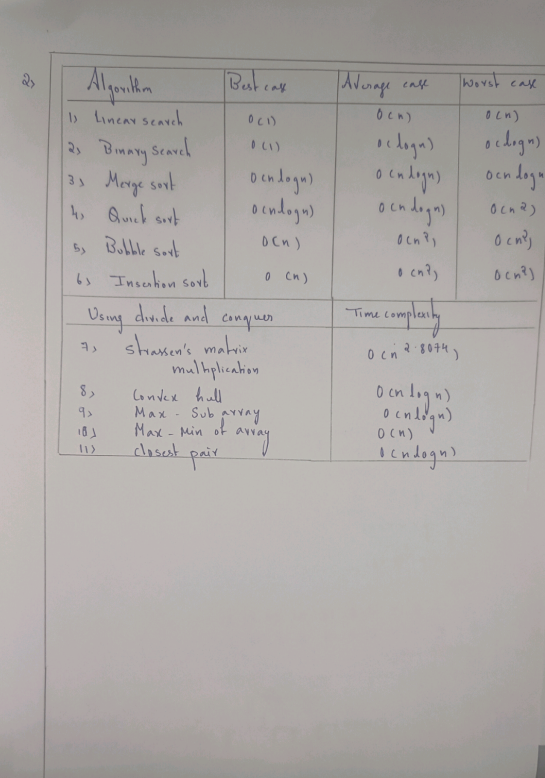 2,
Algorithm Best case Average case Worst case
1) Linear search O(1) O(n) O(n)
2, Binary search O(1) O(logn) O(logn)
3, Merge sort O(nlogn) O(nlogn) O(nlogn
4, Quick sort O(nlogn) O(nlogn) O(n2)
5, Bubble sort O(n) O(n2) O(n2)
6, Insertion sort O(n) O(n2) O(n2)
Using divide and conquer Time complexity
7, Strassen's matrix O(n 2.8074)
multiplication
8, Convex hull O(nlogn)
9, Max - Sub array O(nlogn)
10) Max - Min of array O(n)
11) closest pair O(nlogn)